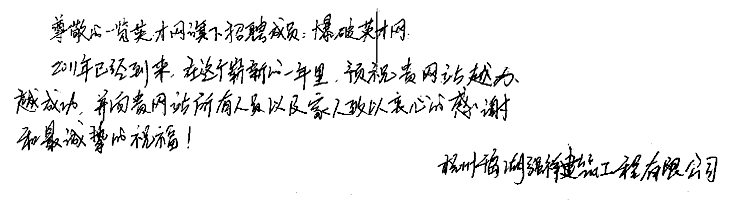 尊敬的一览英才网旗下招聘成员：爆破英才网
2011年已经到来，在这个崭新的一年里，预祝贵网站越办
越成功，并向贵网站所有人员以及家人致以衷心的感谢
和最诚挚的祝福！
杭州 湖强 建筑工程有限公司